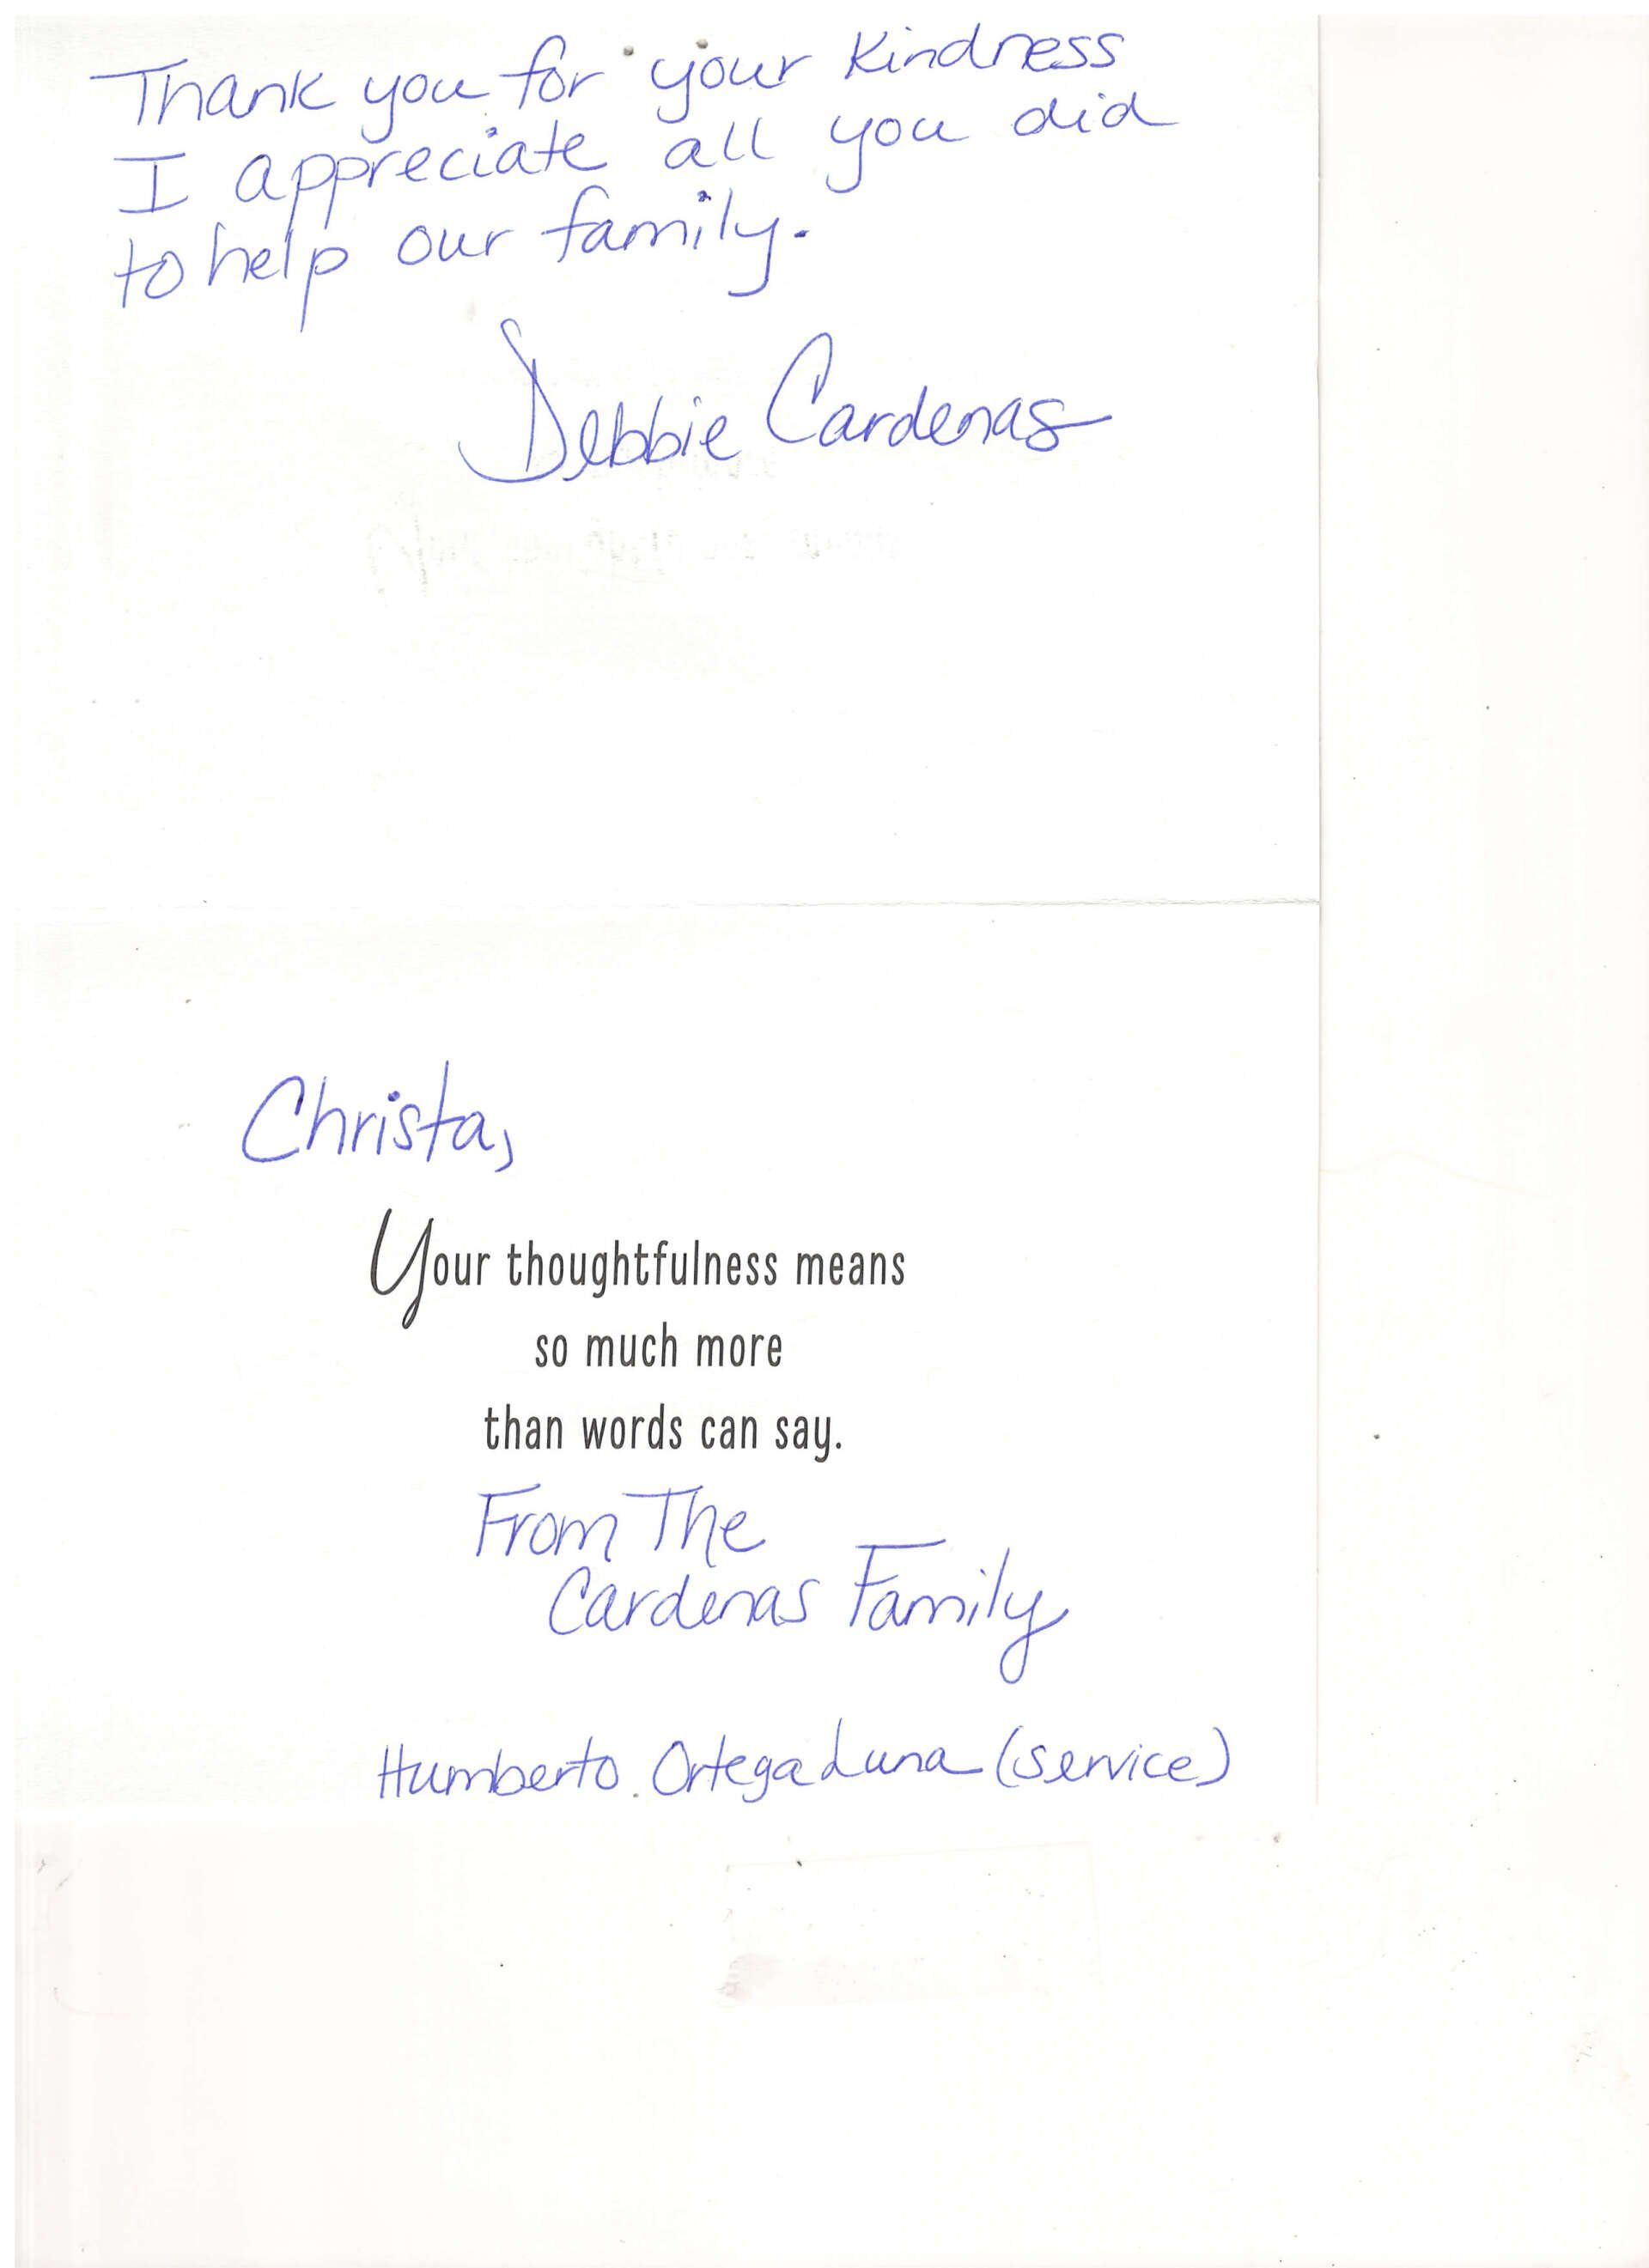 Thank you for your Kindness
I appreciate all you did
to help our family.
Debbie Cardenas
Christa,
Your thoughtfulness means
so much more
than words can say.
From The
Cardenas Family
Humberto Ortega Luna (service)